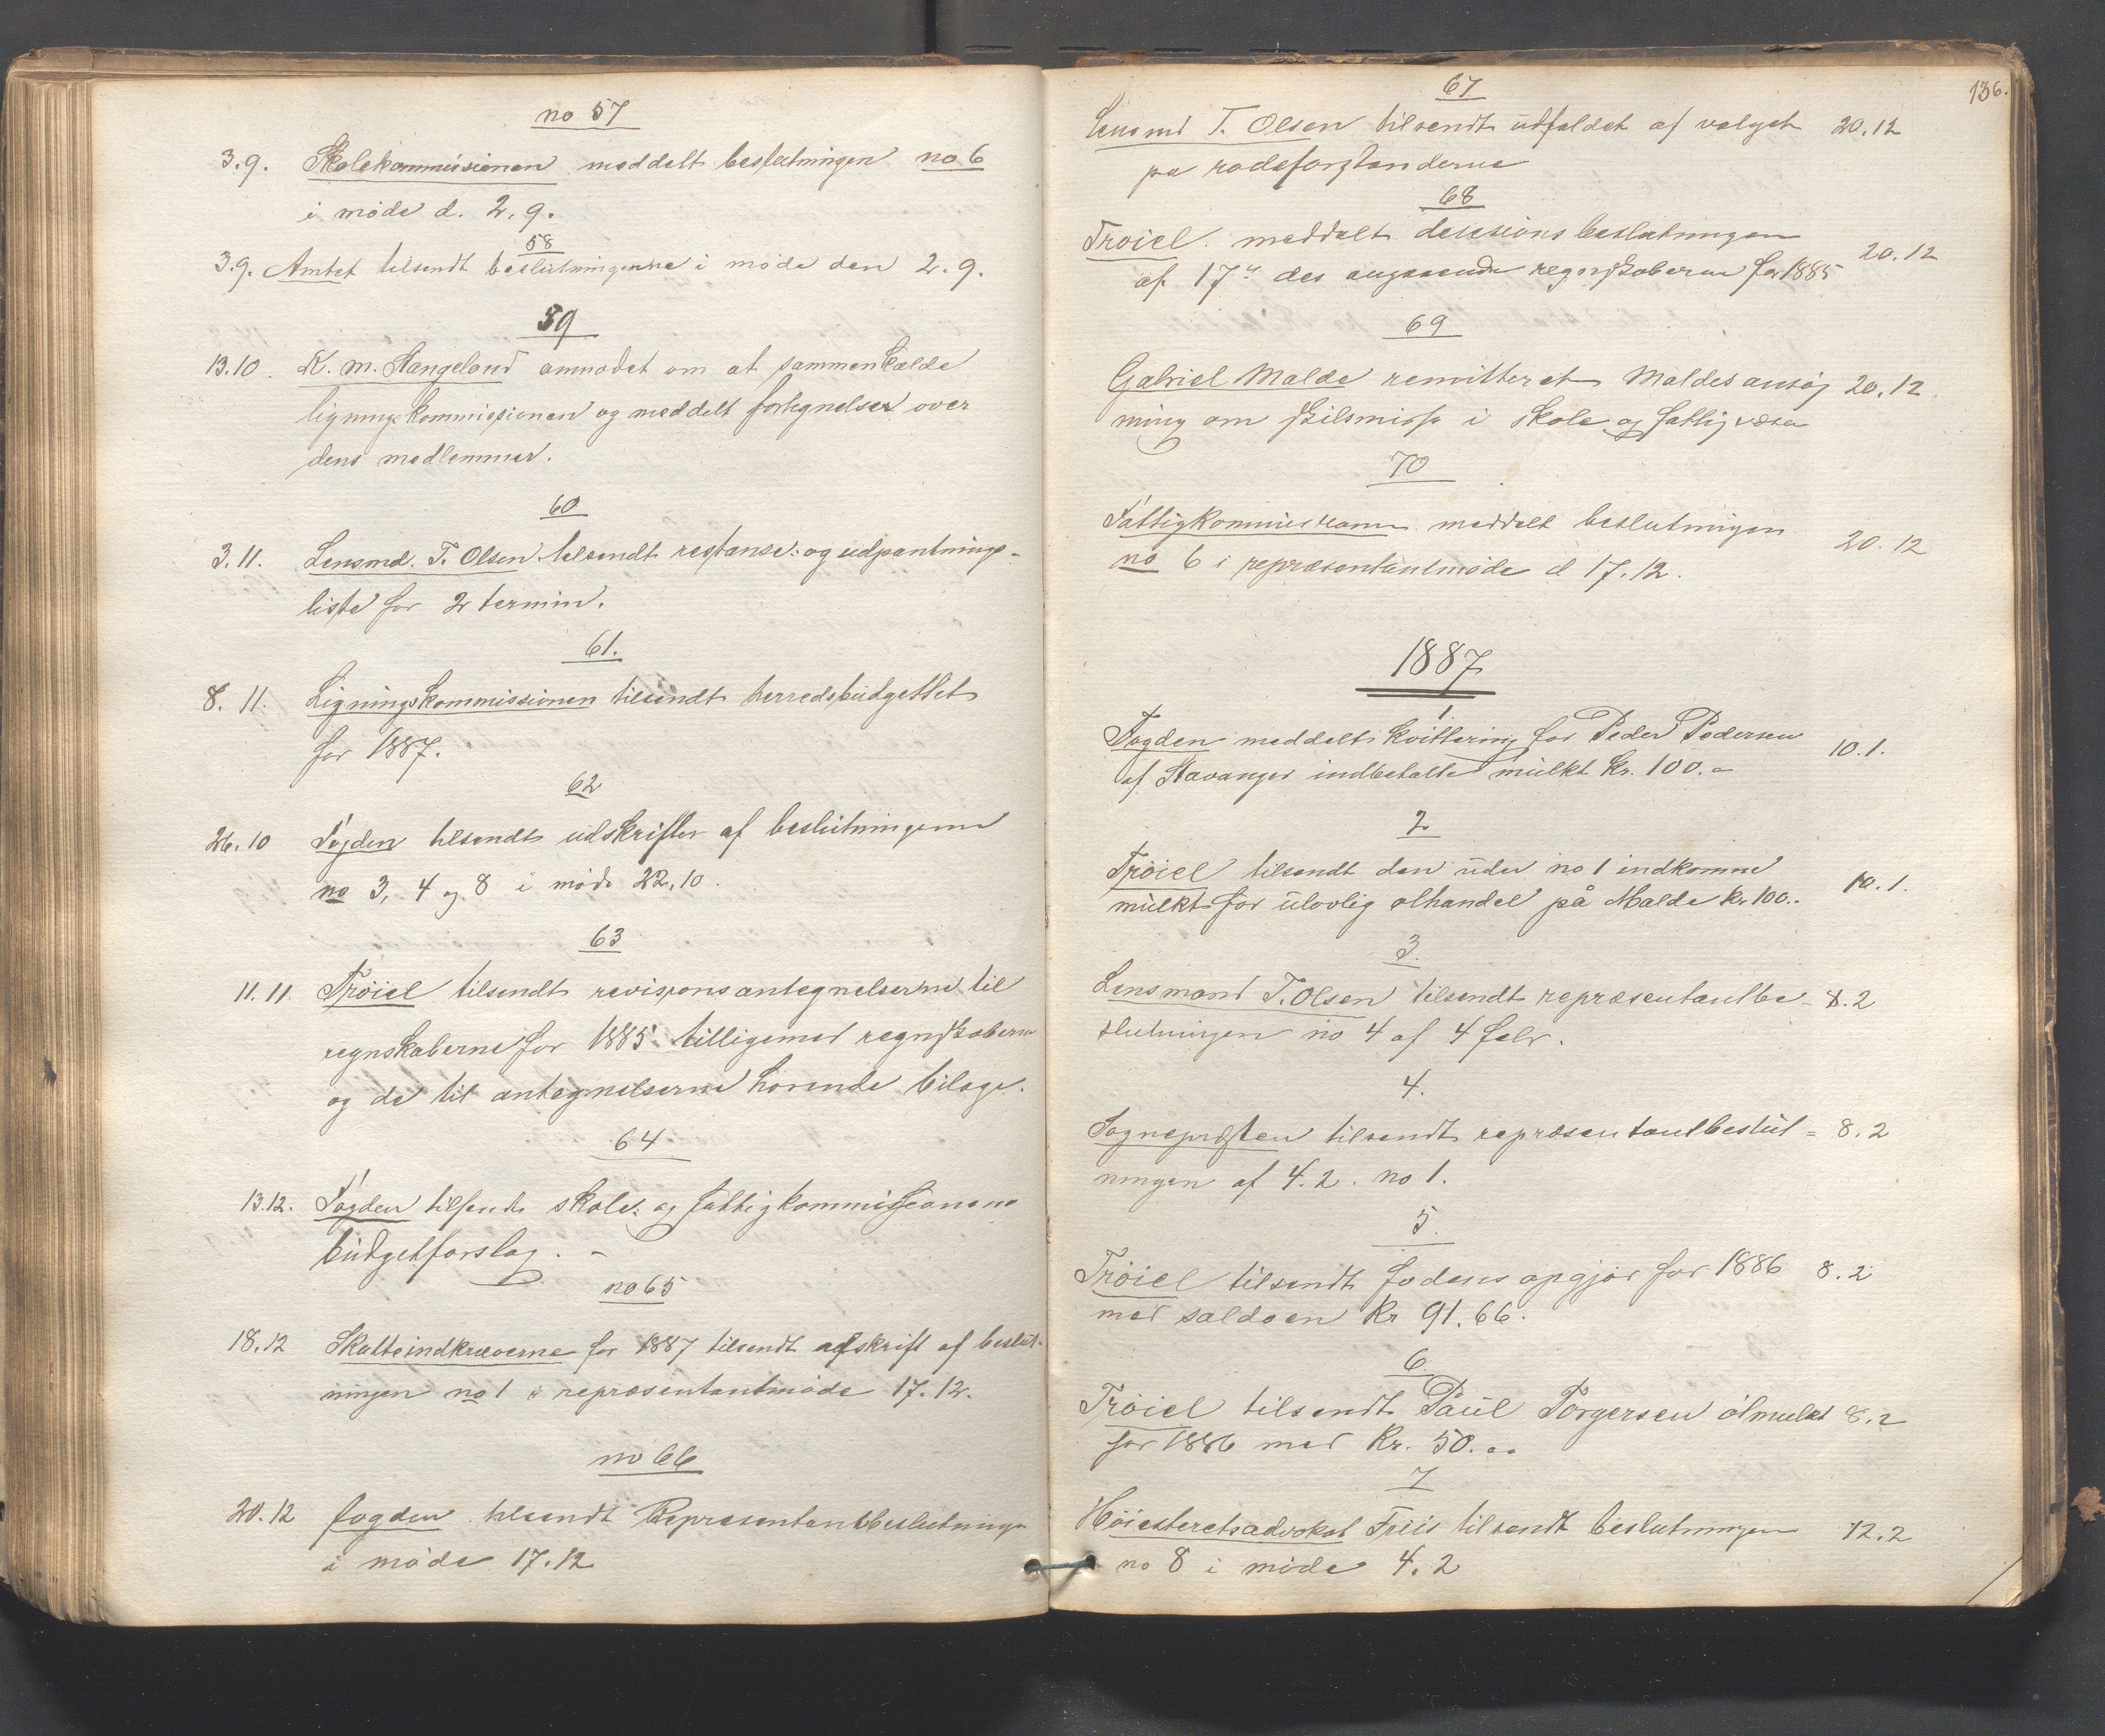 no 57
3.9. Skolekommissionen meddelt beslutningen no 6
i møde d. 2.9.
58
3.9. Amtet tilsendt beslutningerne i møde den 2.9.
59
13.10. K. M. Stangeland anmodet om at sammenkalde
ligningskommissionen og meddelt fortegnelser over
dens medlemmer.
60
3.11. Lensmd. T. Olsen tilsendt restanse: og udpantnings-
liste for 2 termin.
61.
8. 11. Ligningskommissionen tilsendt herredsbudgettet
for 1887.
62
26.10 Fogden tilsendt udskrifter af beslutningerne
no 3, 4 og 8 i møde 22.10.
63
11.11. Trøiel tilsendt revisionsantegnelserne til
regnskaberne for 1885 tilligemed regnskaberne
og de til antegnelserne hørende bilage.
64
13.12. Fogden tilsendt skole: og fattigkommissionens
budgetforslag. -
no 65
18.12 Skatteindkræverne for 1887 tilsendt afskrift af beslut-
ningen no 1 i repræsentantmøde 17.12.
no 66
20.12 fogden tilsendt Repræsentantbeslutninge
i møde 17.12
136.
67
Lensmd T. Olsen tilsendt udfaldet af valget 20.12
pa rodeforstanderne
68
Trøiel. meddelt desisionsbeslutningen
af 17de des angaaende regnskaberne for 1885 20.12
69
Gabriel Malde remitteret Maldes ansøg 20.12
ning om skilsmisse i skole og fattigvæsen
70
Fattigkommissionen meddelt beslutningen
no 6 i repræsentantmøde d 17.12. 20.12
1887
1.
Fogden meddelt kvittering for Peder Pedersen
af Stavanger indbetalte mulkt kr. 100.- 10.1.
2
Trøiel tilsendt den under no 1 indkomne
mulkt for ulovlig ølhandel på Malde kr 100.. 10.1.
3.
Lensmand T. Olsen tilsendt repræsentantbe- 8.2
slutningen no 4 af 4 febr.
4.
Sognepresten tilsendt repræsentantbeslut = 8.2
ningen af 4.2. no 1.
5.
Trøiel tilsendt fodens opgjør for 1886 8.2
med saldoen kr 91.66.
6
Trøiel tilsendt Paul Torgersen ølmulkt 8.2
for 1886 med kr. 50.00
7
Høiesteretsadvokat Friis tilsendt beslutningen 12.2
no 8 i møde 4.2